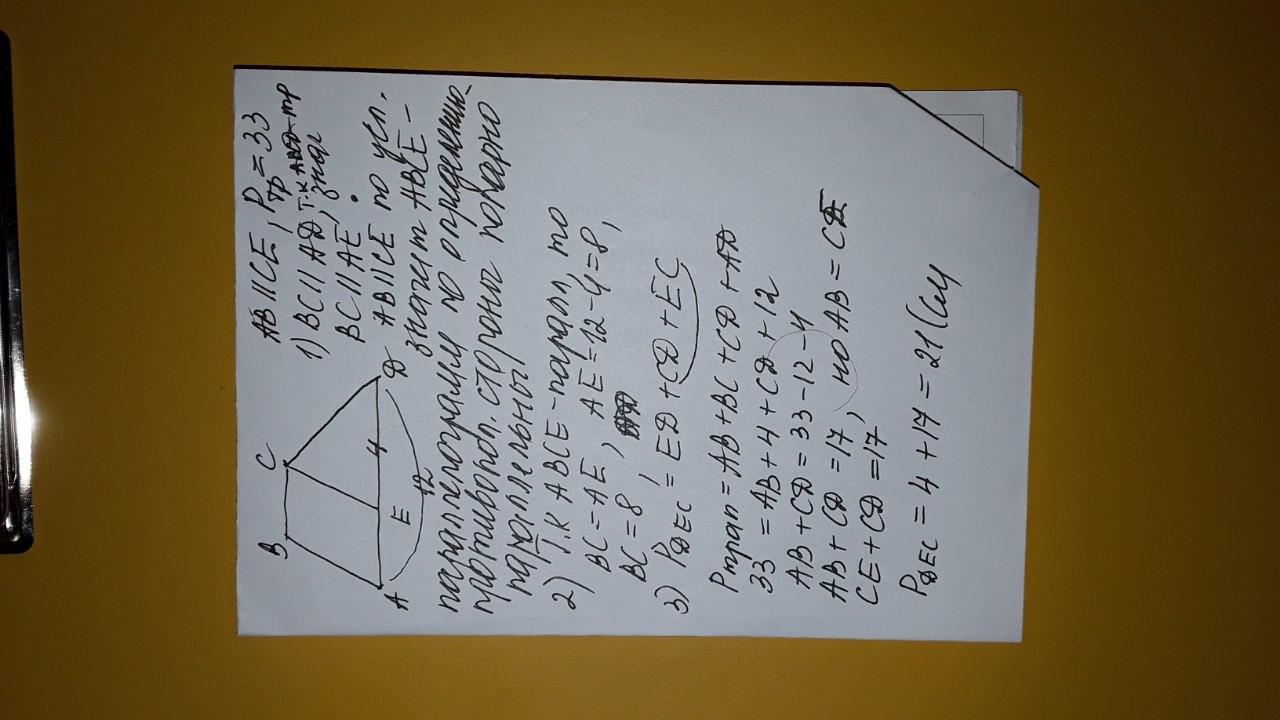 B C
A E 4 D
12
AB || CE, Pтр = 33
1) BC || AD т.к ABCD тр
BC || AE, знач
AB || CE по усл.
значит ABCE -
параллелограмм по определению -
противопол. стороны попарно
параллельны
2) Т.к ABCE - паралл, то
BC = AE, AE = 12 - 4 = 8,
BC = 8
3) PDEC = ED + CD + EC
Pтрап = AB + BC + CD + AD
33 = AB + 4 + CD + 12
AB + CD = 33 - 12 - 4
AB + CD = 17, но AB = CE
CE + CD = 17
PDEC = 4 + 17 = 21 (см